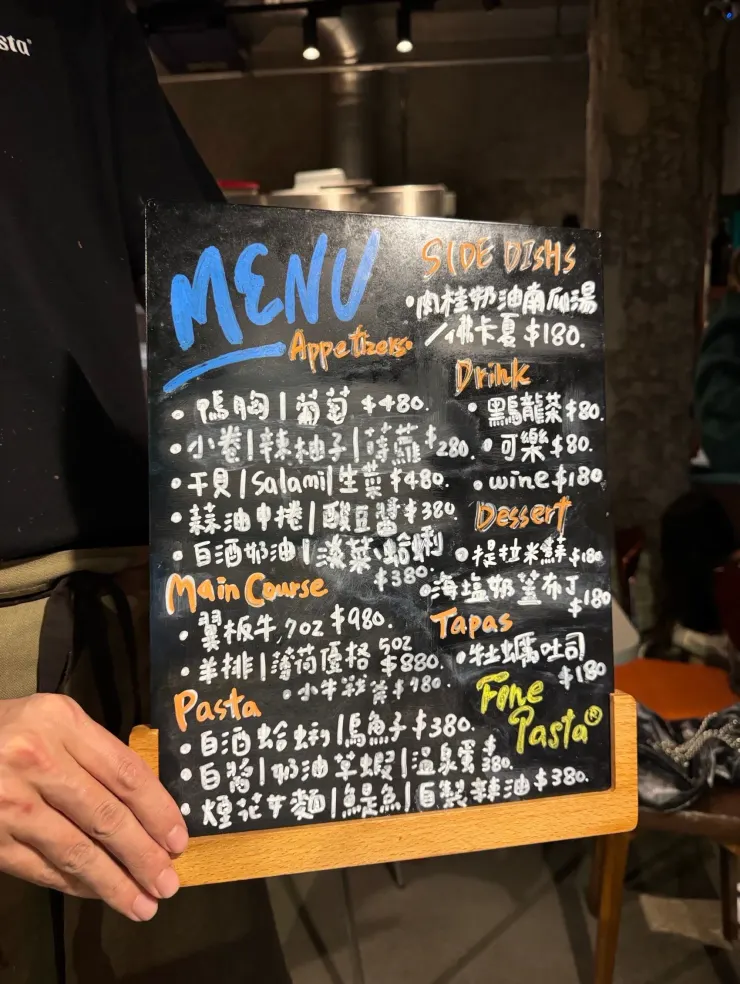 sta®
MENU
Appetizers
• 鴨胸|葡萄 $480.
• 小卷|辣柚子|蒔蘿 $280.
• 干貝|Salami|生菜 $480.
• 蒜油中捲|酸豆醬 $380.
• 白酒奶油|淡菜、蛤蜊
$380.
Main Course
• 翼板牛, 7oz $980.
• 羊排|薄荷優格 5oz $880.
• 小牛 $980.
Pasta
• 白酒蛤蜊|烏魚子 $380.
• 白醬|奶油草蝦|溫泉蛋 $380.
• 煙花女麵|鯷魚|自製辣油 $380.
SIDE DISHS
• 肉桂奶油南瓜湯
/佛卡夏 $180.
Drink
• 黑烏龍茶 $80.
• 可樂 $80.
• wine $180
Dessert
• 提拉米蘇 $180
• 海塩奶蓋布丁
$180
Tapas
• 牡蠣吐司
$180
Fine
Pasta®